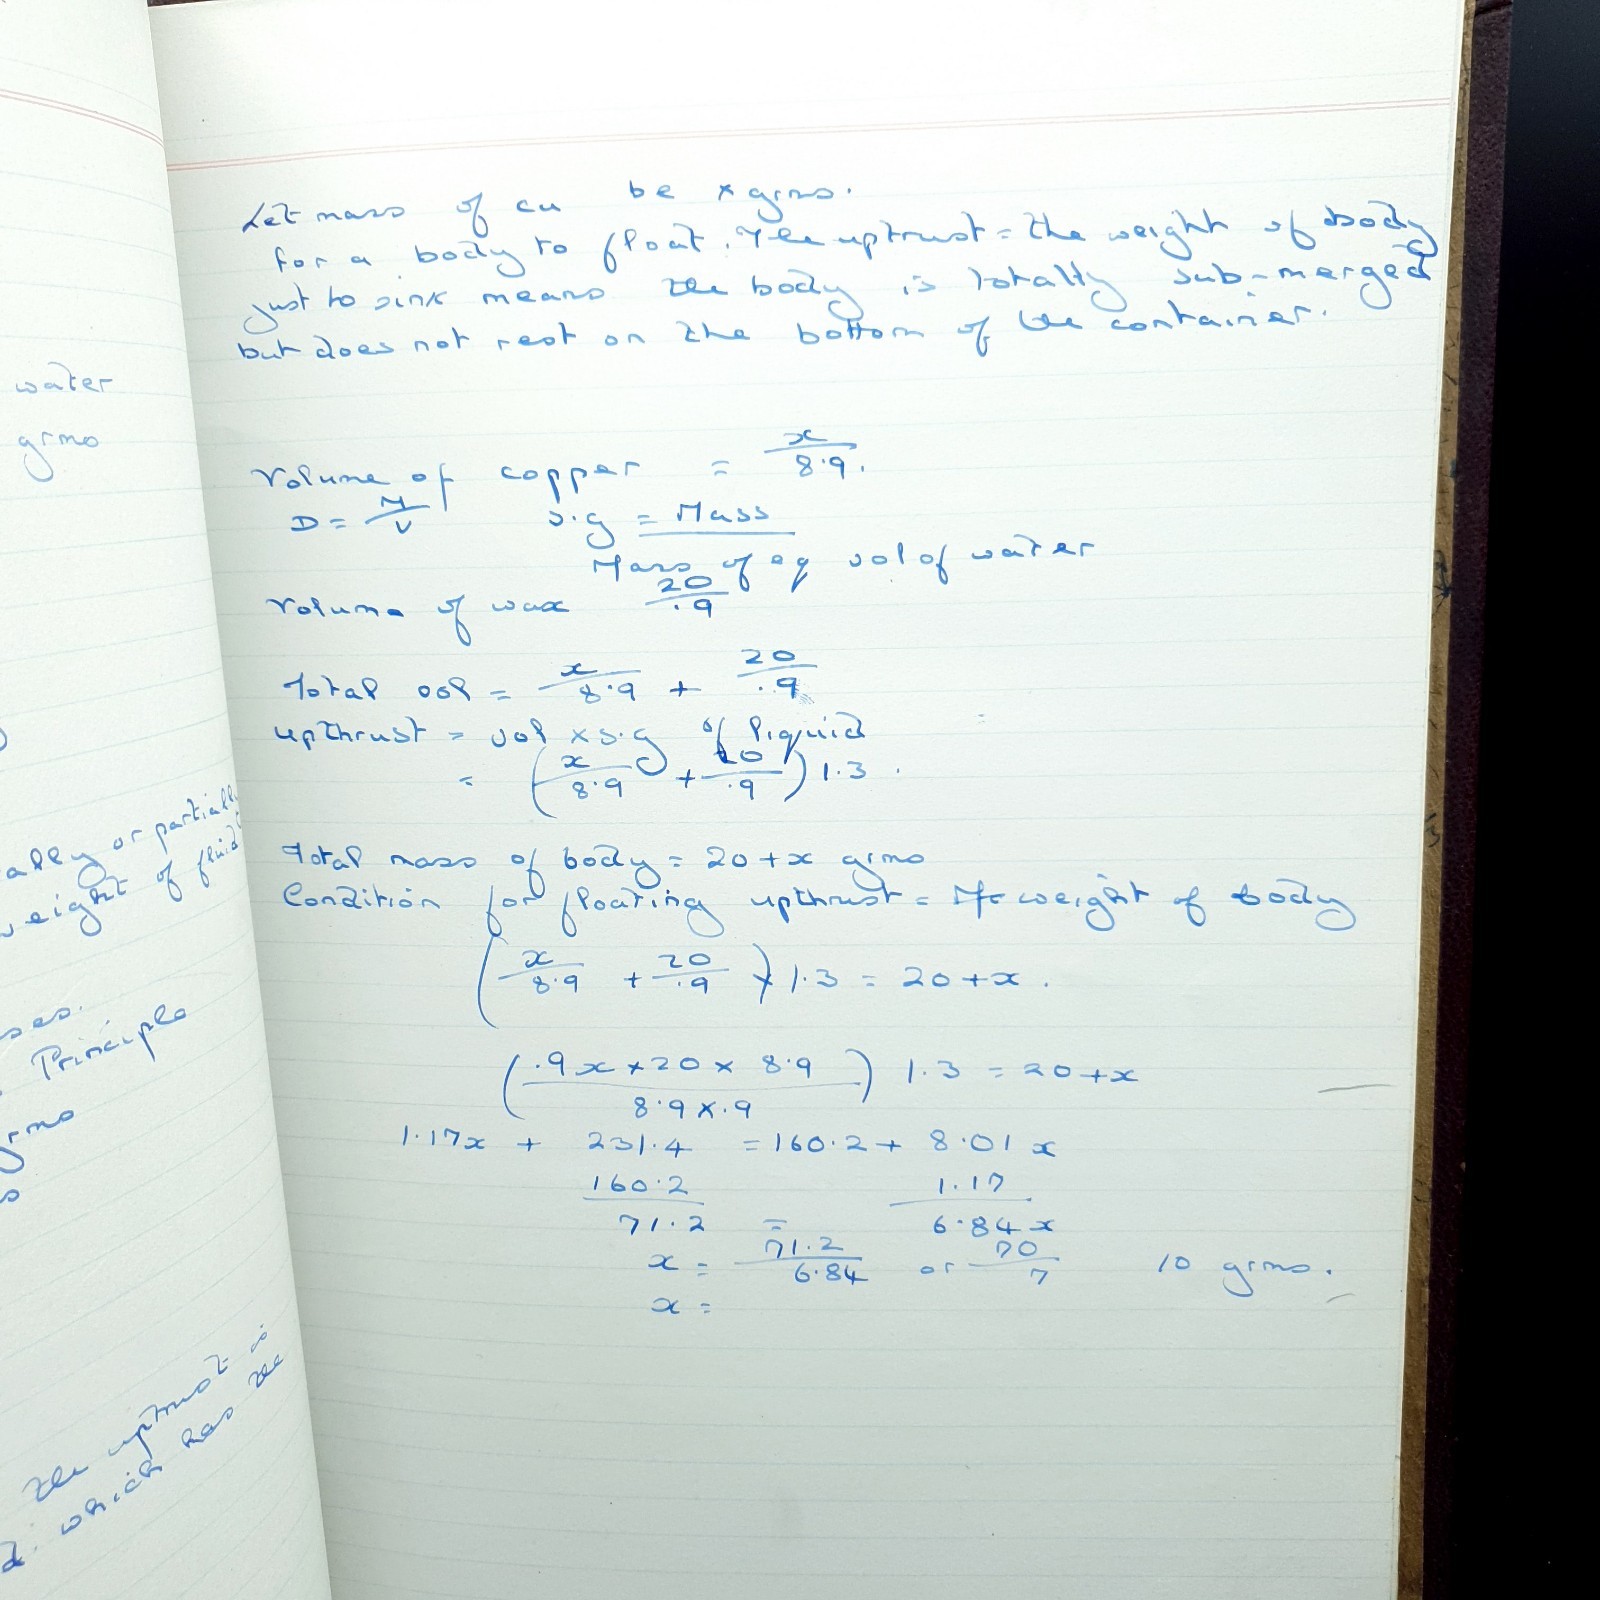 water
grms
ally or partially
weight of fluid
Principle
the uptrust is
which has the
Let mass of cu be x grms.
for a body to float. The uptrust = the weight of body
just to sink means the body is totally sub-merged
but does not rest on the bottom of the container.
Volume of copper = x/8.9.
D = M/V s.g = Mass / Mass of eq vol of water
Volume of wax 20/.9
Total vol = x/8.9 + 20/.9
upthrust = vol x s.g of liquid
= (x/8.9 + 20/.9) 1.3.
Total mass of body = 20 + x grms
Condition for floating upthrust = weight of body
(x/8.9 + 20/.9) 1.3 = 20 + x.
(.9x + 20 x 8.9 / 8.9 x .9) 1.3 = 20 + x
1.17x + 231.4 = 160.2 + 8.01x
160.2 1.17
71.2 = 6.84x
x = 71.2/6.84 or 70/7 10 grms.
x =